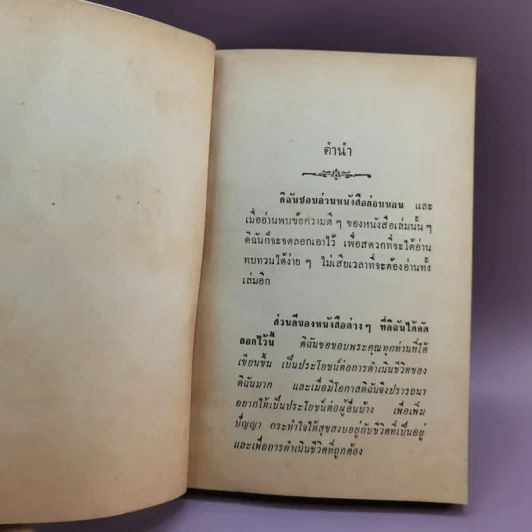 คำนำ
ดิฉันชอบอ่านหนังสือก่อนนอน และ
เมื่ออ่านพบข้อความดี ๆ ของหนังสือเล่มนั้น ๆ
ดิฉันก็จะจดลอกเอาไว้ เพื่อสดวกที่จะได้อ่าน
ทบทวนได้ง่าย ๆ ไม่เสียเวลาที่จะต้องอ่านทั้ง
เล่มอีก
ส่วนดีของหนังสือต่าง ๆ ที่ดิฉันได้คัด
ลอกไว้นี้ ดิฉันขอขอบพระคุณทุกท่านที่ได้
เขียนขึ้น เป็นประโยชน์ต่อการดำเนินชีวิตของ
ดิฉันมาก และเมื่อมีโอกาสดิฉันจึงปรารถนา
อยากให้เป็นประโยชน์ต่อผู้อื่นบ้าง เพื่อเพิ่ม
ปัญญา กระทำใจให้สุขสงบอยู่กับชีวิตที่เป็นอยู่
และเพื่อการดำเนินชีวิตที่ถูกต้อง